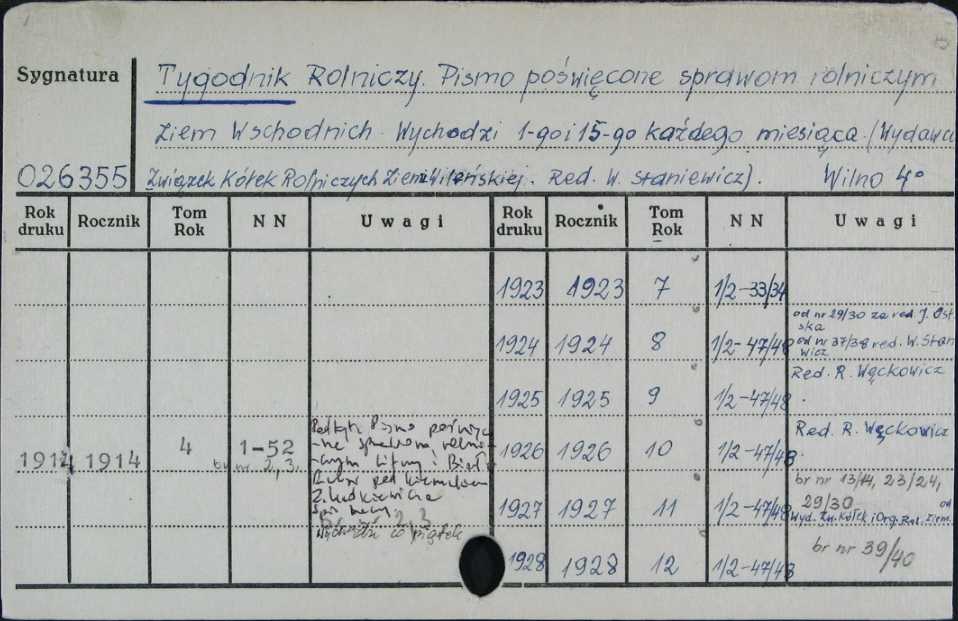 Sygnatura
Tygodnik Rolniczy. Pismo poświęcone sprawom rolniczym
Ziem Wschodnich. Wychodzi 1-go i 15-go każdego miesiąca. (Wydawca
026355 Związek Kółek Rolniczych Ziemi Wileńskiej. Red. W. Staniewicz). Wilno 4°
Rok druku Rocznik Tom Rok N N Uwagi Rok druku Rocznik Tom Rok N N Uwagi
1923 1923 7 1/2-33/34
1924 1924 8 1/2-47/48 od nr 29/30 za red. J. Ost
ska
od nr 37/38 red. W. Stan
wicz
1925 1925 9 1/2-47/48 Red. R. Węckowicz
1914 1914 4 1-52
br nr 2, 3.
Podtyt. Pismo poświęco
-ne sprawom rolni-
-czym Litwy i Biał.
Z. Ludkiewicza
2, 3
wychodzi co piątek
1926 1926 10 1/2-47/48 Red. R. Węckowicz
1927 1927 11 1/2-47/48 br nr 13/14, 23/24,
29/30 od
Wyd. Zw. Kółek i Org. Rol. Ziem.
1928 1928 12 1/2-47/48 br nr 39/40